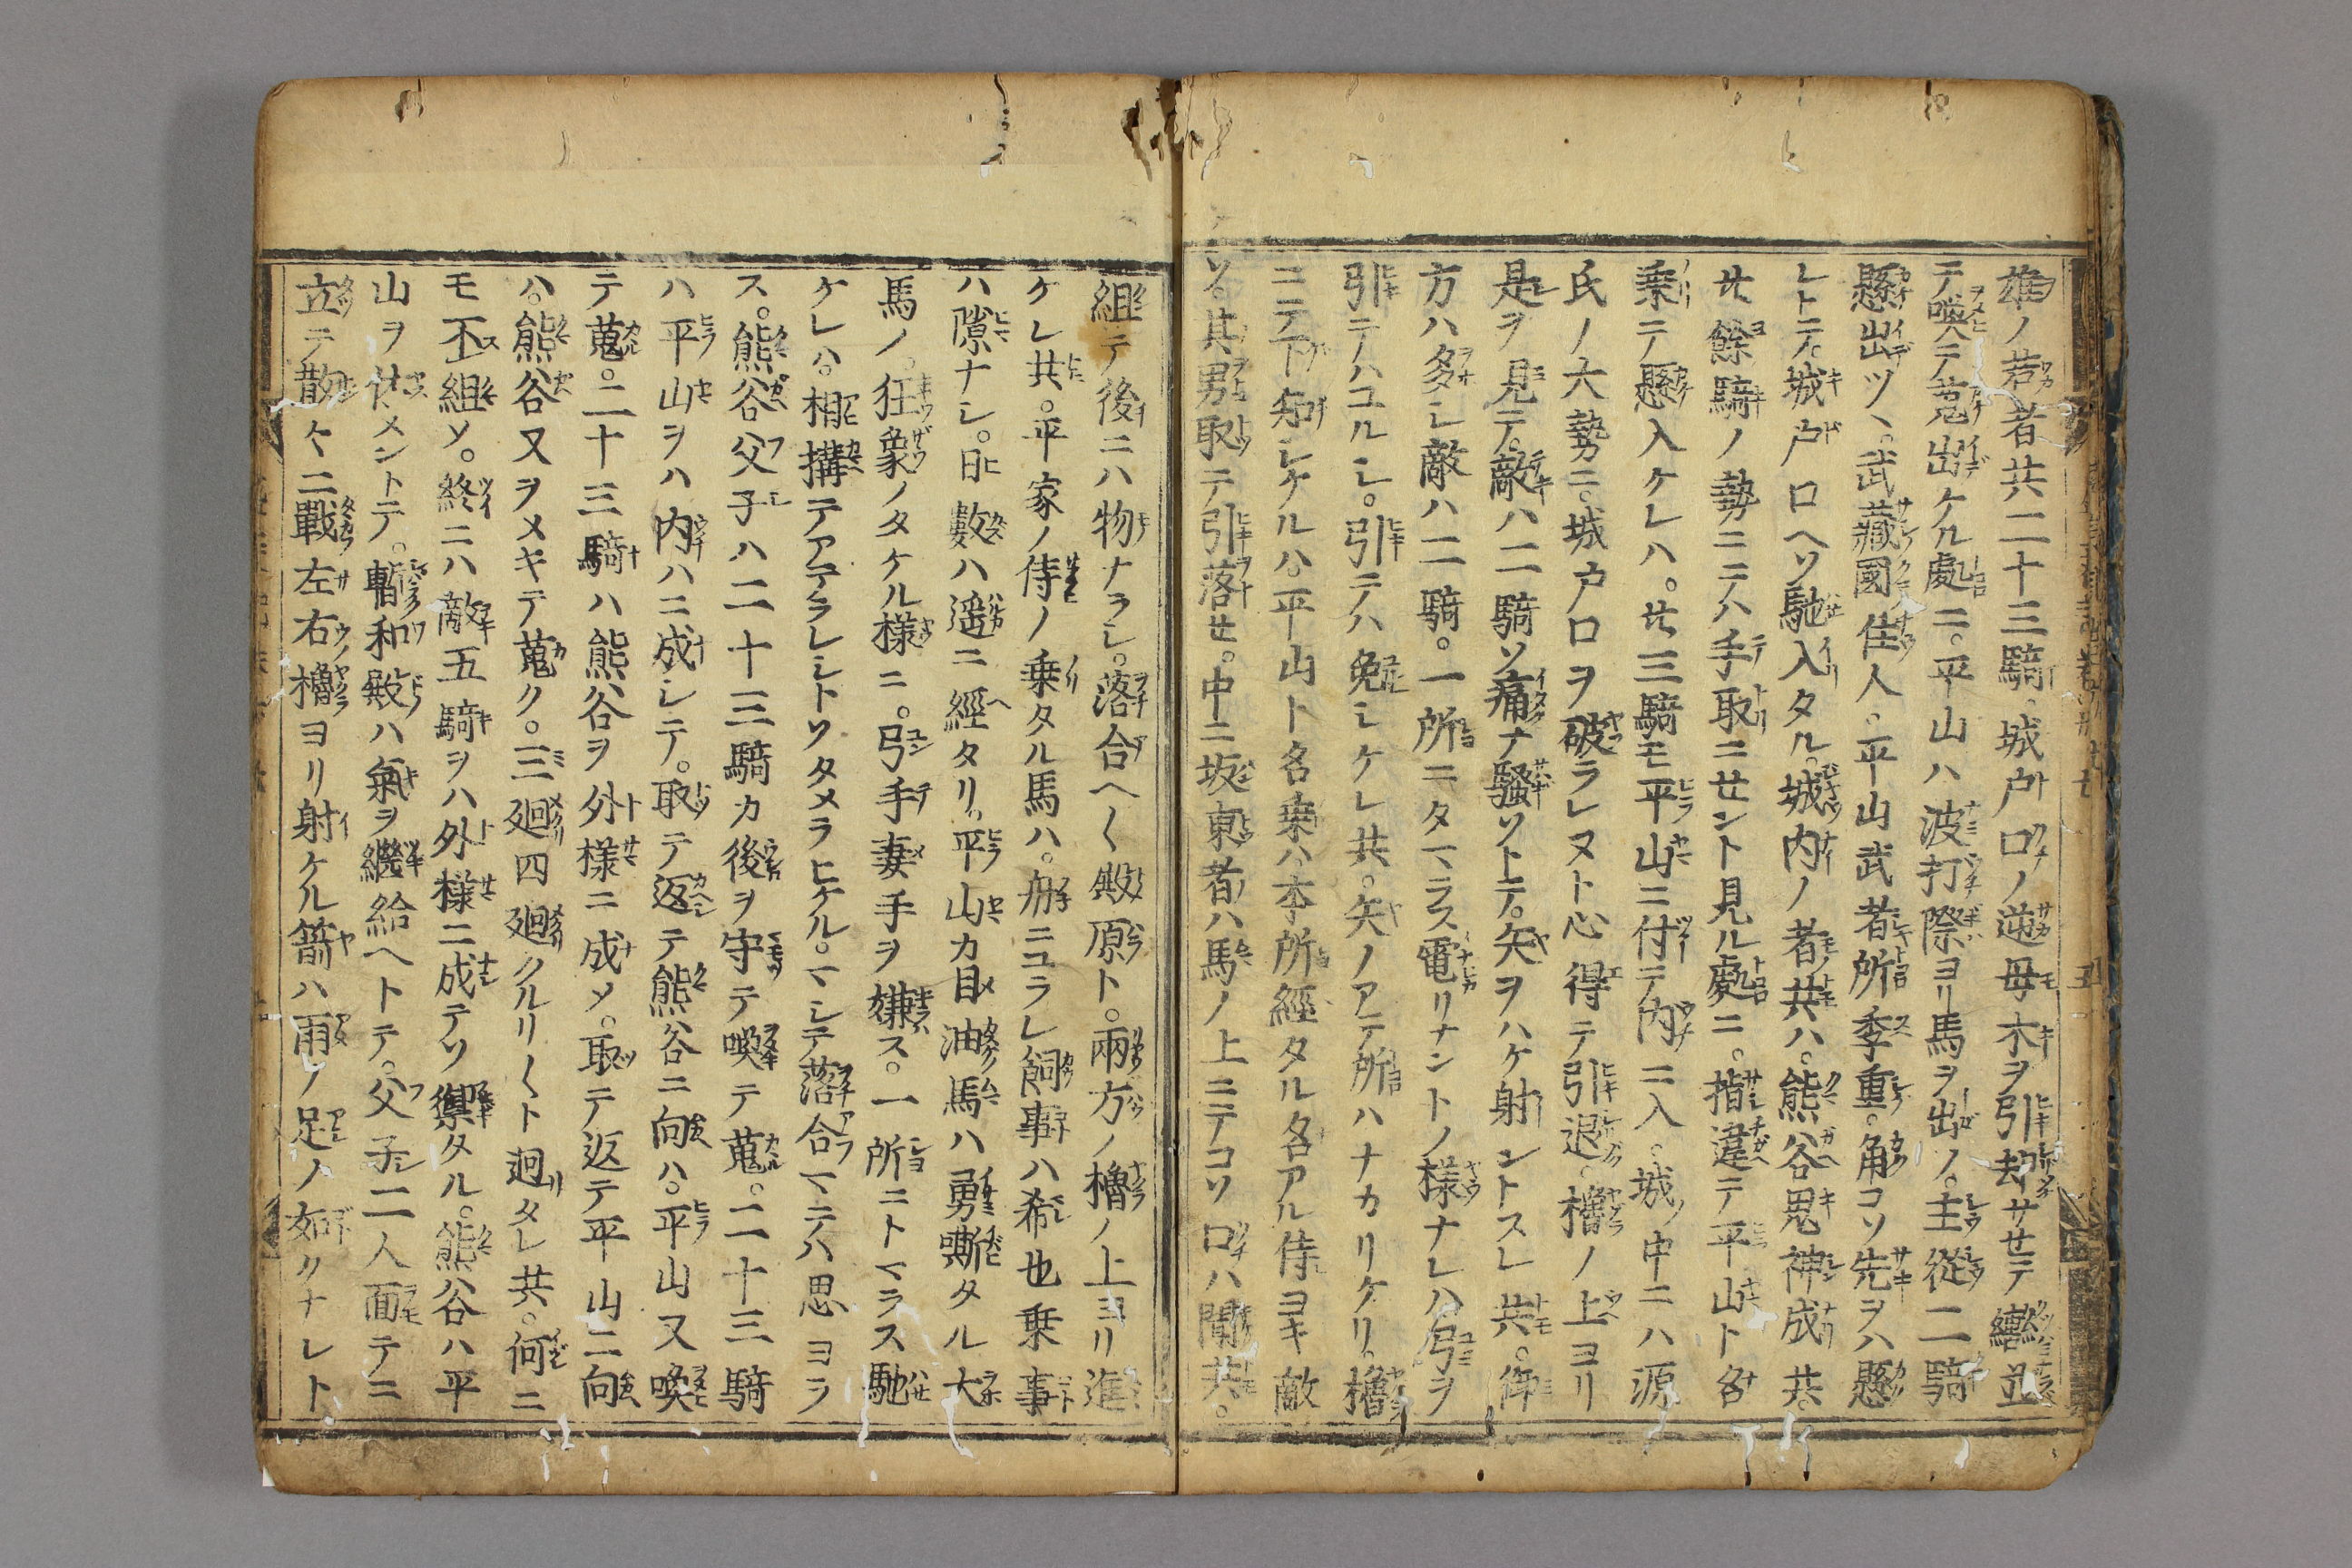 雄ノ若者共二十三騎。城戸口ノ逆母木ヲ引却サセテ轡並
テ喚テ蒐出ケル處ニ。平山ハ波打際ヨリ馬ヲ出ノ。主從二騎
懸出ツヽ。武藏國住人。平山武者所季重。角コソ先ヲハ懸
レトテ。城戸口ヘソ馳入タル。城内ノ者共ハ。熊谷思神成共。
廿餘騎ノ勢ニテハ手取ニセント見ル處ニ。指違テ平山ト名
乗テ懸入ケレハ。廿三騎モ平山ニ付テ内ニ入。城ノ中ニハ源
氏ノ大勢ニ。城戸口ヲ破ラレヌト心得テ引退。櫓ノ上ヨリ
是ヲ見テ。敵ハ二騎ソ痛ナ騒ソトテ。矢ヲハケ射ントスレ共。御
方ハ多シ敵ハ二騎。一所ニタマラス電リナントノ様ナレハ弓ヲ
引テハユルシ。引テハ免シケレ共。矢ノアテ所ハナカリケリ。櫓
ニテ下知シケルハ。平山ト名乗ハ本所經タル名アル侍ヨキ敵
ソ。其男取テ引落セ。中ニ坂東者ハ馬ノ上ニテコソ口ハ聞共。
組テ後ニハ物ナラシ。落合ヘ〱殿原ト。兩方ノ櫓ノ上ヨリ進
ケレ共。平家ノ侍ノ乗タル馬ハ。舟ニユラレ飼事ハ希也乗事
ハ隙ナシ。日數ハ遥ニ經タリ。平山カ目油馬ハ勇嘶タル大
馬ノ。狂象ノタケル様ニ。弓手妻手ヲ嫌ス。一所ニトマラス馳
ケレハ。相搆テアテラレシトソタメラヒケル。マシテ落合マテハ思ヨラ
ス。熊谷父子ハ二十三騎カ後ヲ守テ喚テ蒐。二十三騎
ハ平山ヲハ内ハニ成シテ。取テ返テ熊谷ニ向ハ。平山又喚
テ蒐。二十三騎ハ熊谷ヲ外様ニ成メ。取テ返テ平山ニ向
ハ。熊谷又ヲメキテ蒐ク。三廻四廻クルリ〱ト廻タレ共。何ニ
モ不組ソ。終ニハ敵五騎ヲハ外様ニ成テソ禦タル。熊谷ハ平
山ヲ休メントテ。暫和殿ハ氣ヲ繼給ヘトテ。父子二人面テニ
立テ散〱ニ戰左右櫓ヨリ射ケル箭ハ雨ノ足ノ如クナレト